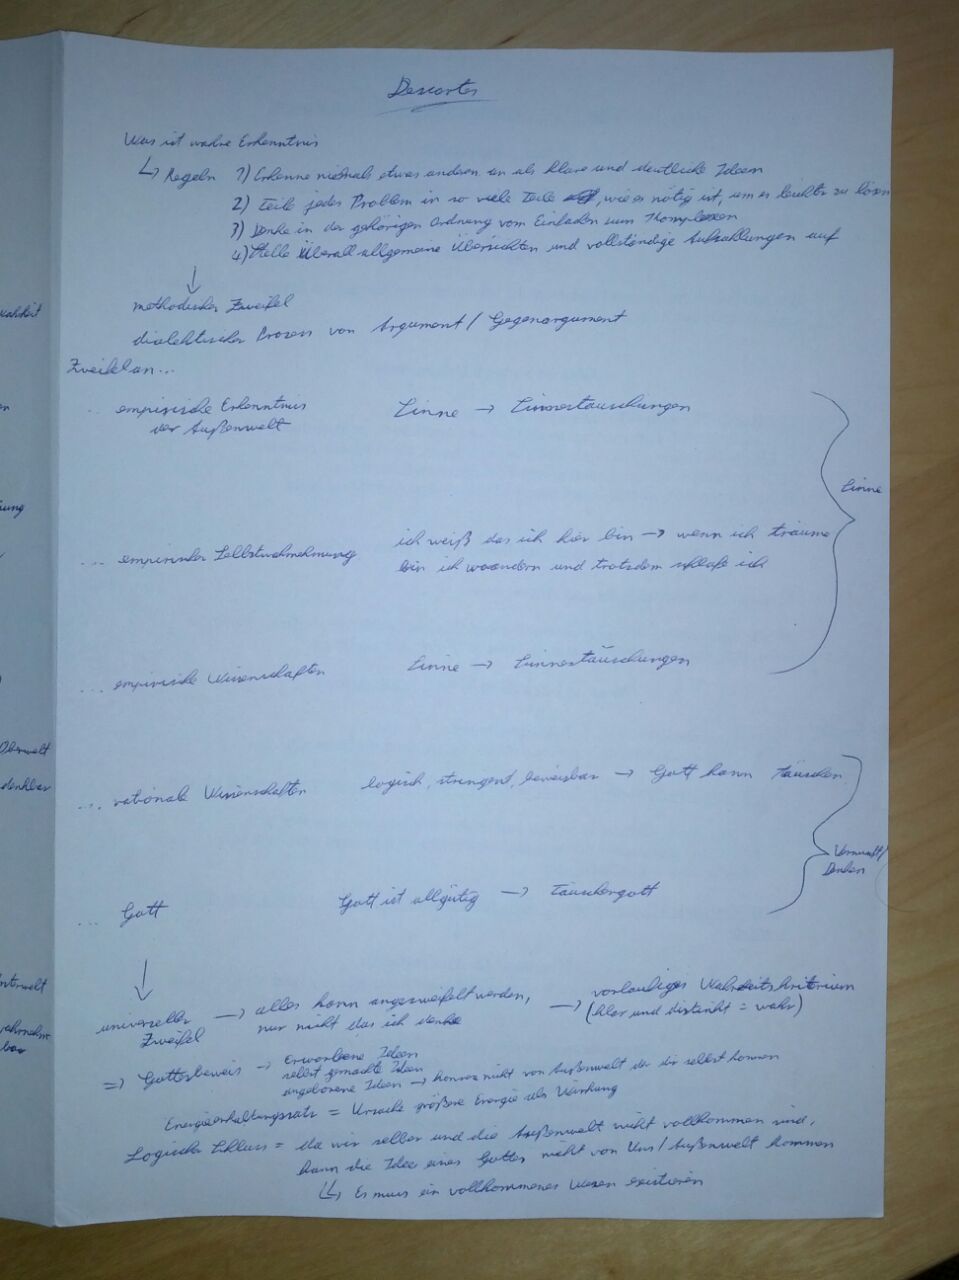 Descartes
Was ist wahre Erkenntnis
↳ Regeln 1) Erkenne niemals etwas anderes an als klare und deutliche Ideen
2) teile jedes Problem in so viele Teile, wie es nötig ist, um es leichter zu lösen
3) Denke in der gehörigen Ordnung vom Einfachen zum Komplexen
4) Stelle überall allgemeine Übersichten und vollständige Aufzählungen auf
↓
methodischer Zweifel
dialektischer Prozess von Argument / Gegenargument
Zweifel an...
... empirische Erkenntnis der Außenwelt
Sinne → Sinnestäuschungen
... empirischer Selbstwahrnehmung
ich weiß das ich hier bin → wenn ich träume
bin ich woanders und trotzdem schlafe ich
... empirische Wissenschaften
Sinne → Sinnestäuschungen
Sinne
... rationale Wissenschaften
logisch, stringent, beweisbar → Gott kann täuschen
... Gott
Gott ist allgütig → Täuschergott
Vernunft/
Denken
↓
universeller Zweifel → alles kann angezweifelt werden,
nur nicht das ich denke
→ vorläufiges Wahrheitskriterium
(klar und distinkt = wahr)
⇒ Gottesbeweis → Erworbene Ideen
selbst gemachte Ideen
angeborene Ideen → können nicht von Außenwelt oder dir selbst kommen
Energieerhaltungssatz = Ursache größere Energie als Wirkung
Logischer Schluss = da wir selber und die Außenwelt nicht vollkommen sind,
kann die Idee eines Gottes nicht von Uns/Außenwelt kommen
↳ Es muss ein vollkommenes Wesen existieren
wahrheit
en
ung
Oberwelt
denkbar
Unterwelt
wahrnehm
bar